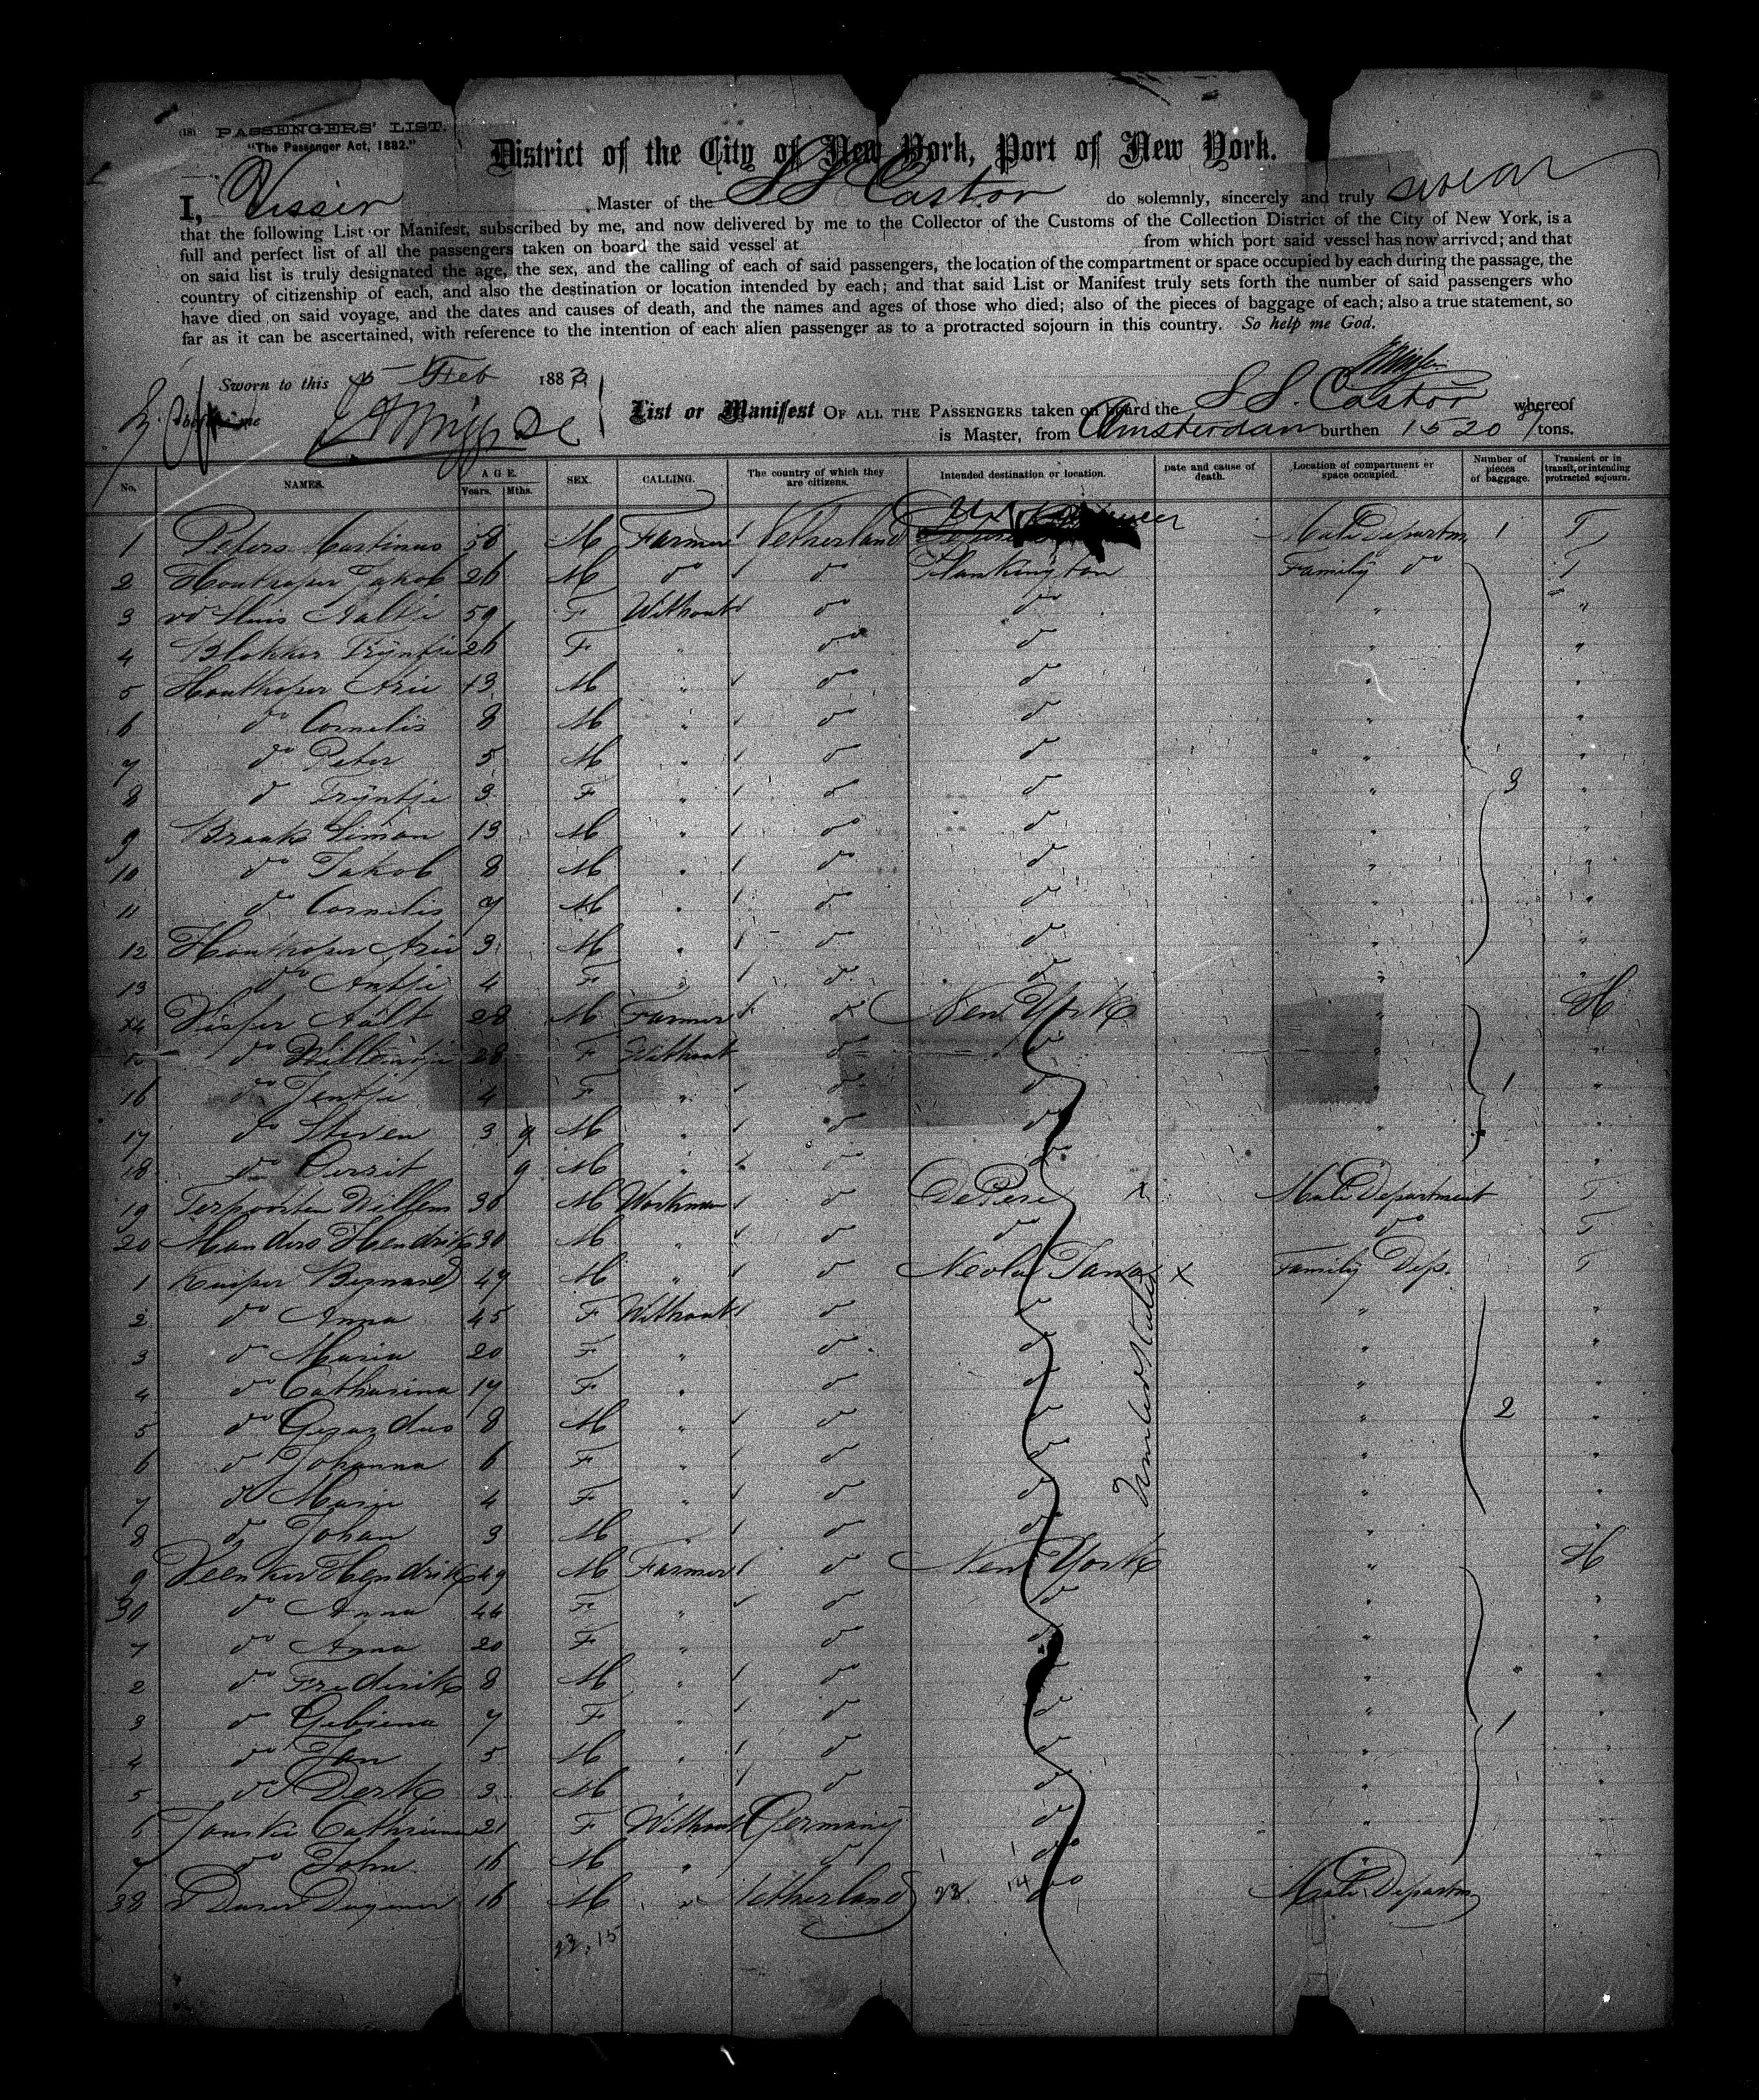 (18) PASSENGERS' LIST.
"The Passenger Act, 1882."
District of the City of New York, Port of New York.
I, Visser, Master of the SS Castor do solemnly, sincerely and truly swear
that the following List or Manifest, subscribed by me, and now delivered by me to the Collector of the Customs of the Collection District of the City of New York, is a
full and perfect list of all the passengers taken on board the said vessel at from which port said vessel has now arrived; and that
on said list is truly designated the age, the sex, and the calling of each of said passengers, the location of the compartment or space occupied by each during the passage, the
country of citizenship of each, and also the destination or location intended by each; and that said List or Manifest truly sets forth the number of said passengers who
have died on said voyage, and the dates and causes of death, and the names and ages of those who died; also of the pieces of baggage of each; also a true statement, so
far as it can be ascertained, with reference to the intention of each alien passenger as to a protracted sojourn in this country. So help me God.
Sworn to this Feb 1883
before me
List or Manifest OF ALL THE PASSENGERS taken on board the SS. Castor whereof
is Master, from Amsterdam burthen 1520 tons.
No. NAMES. AGE. Years. Mths. SEX. CALLING. The country of which they are citizens. Intended destination or location. Date and cause of death. Location of compartment or space occupied. Number of pieces of baggage. Transient or in transit, or intending protracted sojourn.
1 Peters Martinus 58 M Farmer Netherland Male Departm 1 T
2 Houtkoper Jakob 26 M do do Plankington Family do T
3 vd Sluis Aaltje 59 F Without do do " "
4 Blokker Trijntje 26 F " do do " "
5 Houtkoper Arie 13 M " do do " "
6 do Cornelis 8 M " do do " "
7 do Peter 5 M " do do " "
8 do Trijntje 3 F " do do " 3 "
9 Braak Simon 13 M " do do " "
10 do Jakob 8 M " do do " "
11 do Cornelis 7 M " do do " "
12 Houtkoper Arie 3 M " do do " "
13 do Antje 4 F " do do " "
14 Visser Aalt 28 M Farmer do New York " H
15 do Willempje 28 F Without do do " "
16 do Jentje 4 F " do do " 1 "
17 do Steven 3 M " do do " "
18 do Gerrit 9 M " do do "
19 Terpoorten Willem 30 M Workman do DePere x Male Department T
20 Manders Hendrik 30 M " do do do T
1 Kuiper Bernard 49 M " do Neola Iowa x Family Dep. T
2 do Anna 45 F Without do do " "
3 do Maria 20 F " do do " "
4 do Catharina 17 F " do do " "
5 do Gerardus 8 M " do do " 2 "
6 do Johanna 6 F " do do " "
7 do Marie 4 F " do do " "
8 do Johan 3 M " do do " "
9 Veenker Hendrik 49 M Farmer do New York " H
30 do Anna 44 F " do do " "
1 do Anna 20 F " do do " "
2 do Frederik 8 M " do do " "
3 do Gebiena 7 F " do do " 1 "
4 do Jan 5 M " do do " "
5 do Derk 3 M " do do " "
6 21 F Without Germany do " "
7 do John 16 M " do do " "
38 16 M " Netherland 23 14 do Male Departm
23, 15
United States